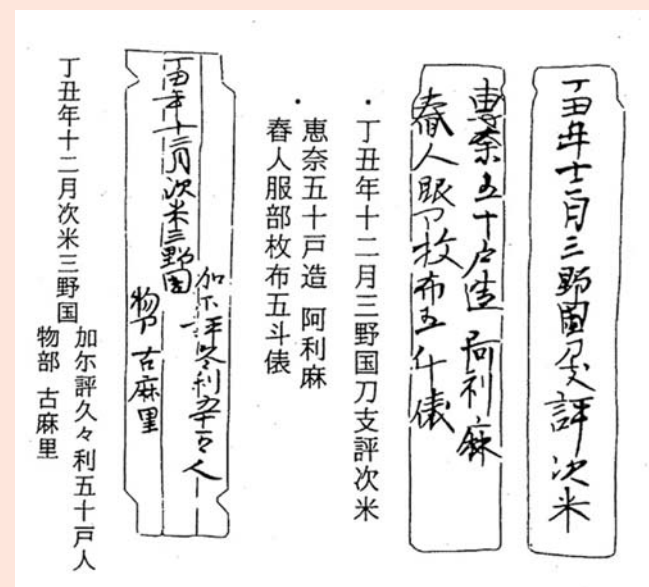 丁丑年十二月三野國刀支評次米
恵奈五十戸造 阿利麻
舂人服部枚布五斗俵
・丁丑年十二月三野国刀支評次米
・恵奈五十戸造 阿利麻
舂人服部枚布五斗俵
丁丑年十二月次米三野國
加尓評久々利五十戸人
物部 古麻里
丁丑年十二月次米三野国
加尓評久々利五十戸人
物部 古麻里